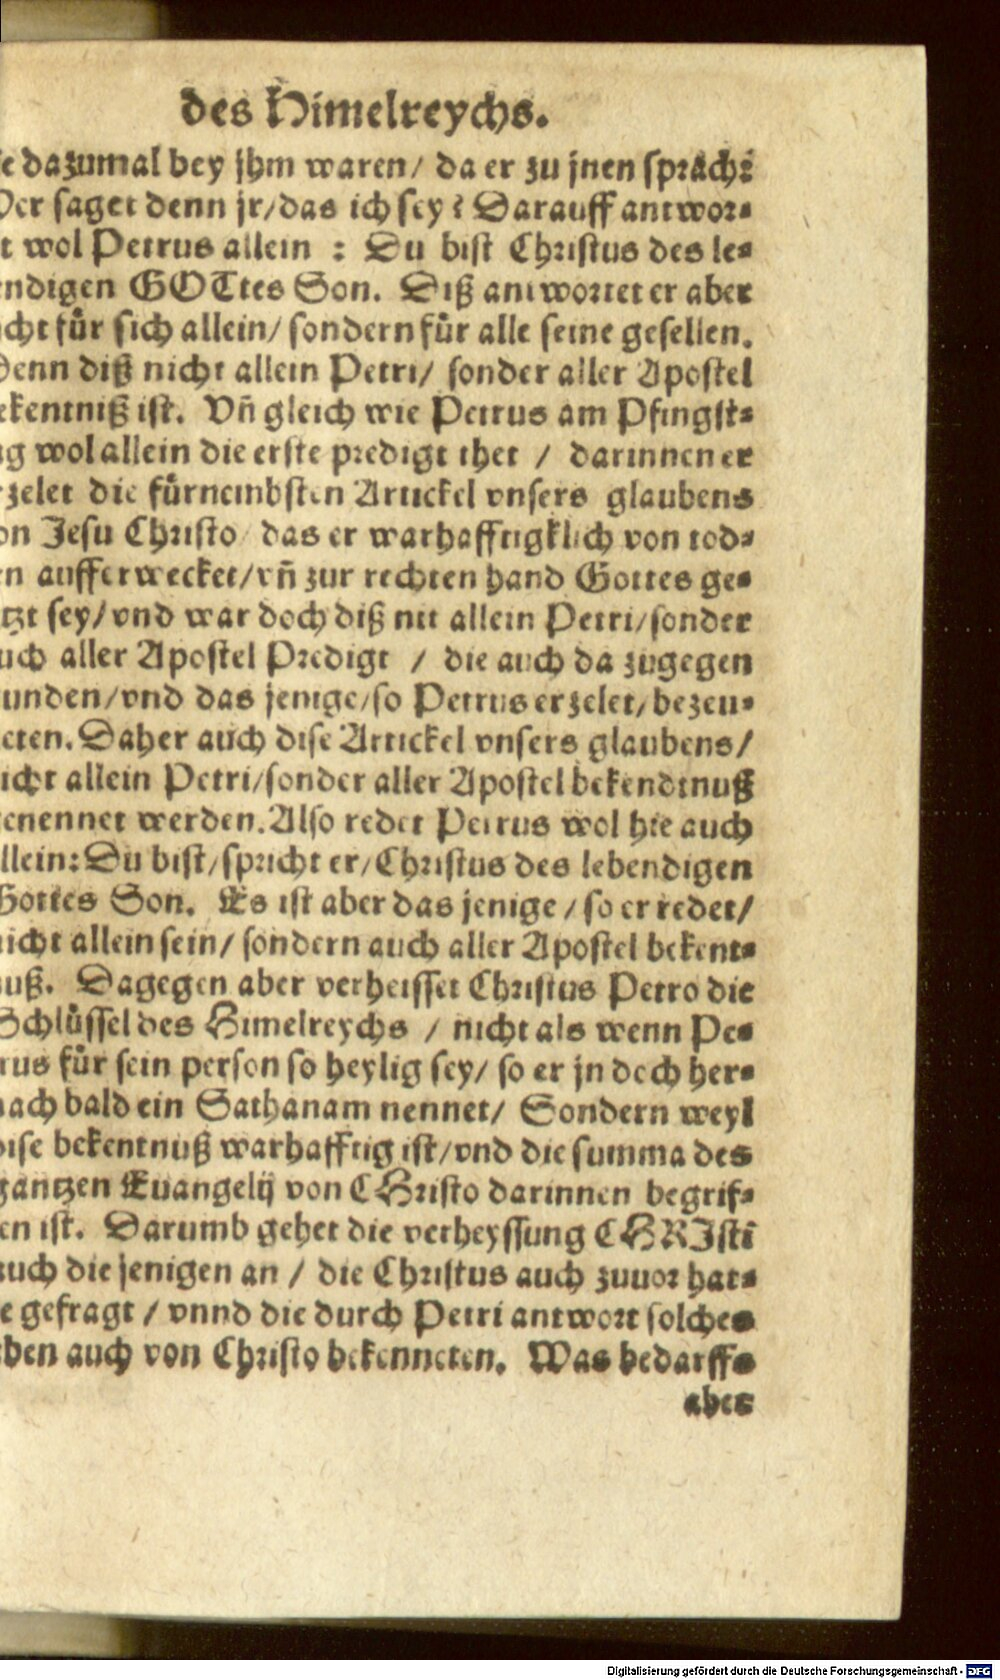 des Himelreychs.
e dazumal bey jhm waren/ da er zu jnen sprach:
er saget denn jr/ das ich sey? Darauff antwor-
t wol Petrus allein : Du bist Christus des le-
ndigen GOTtes Son. Diß antwortet er aber
cht für sich allein/ sondern für alle seine gesellen.
Denn diß nicht allein Petri/ sonder aller Apostel
ekentniß ist. Vñ gleich wie Petrus am Pfingst-
g wol allein die erste predigt thet / darinnen er
zelet die fürnembsten Artickel vnsers glaubens
on Jesu Christo/ das er warhafftigklich von tod-
en aufferwecket/ vñ zur rechten hand Gottes ge-
tzt sey/ vnd war doch diß nit allein Petri/ sonder
uch aller Apostel Predigt / die auch da zugegen
unden/ vnd das jenige/ so Petrus erzelet/ bezeu-
eten. Daher auch dise Artickel vnsers glaubens/
icht allein Petri/ sonder aller Apostel bekendtnuß
enennet werden. Also redet Petrus wol hie auch
llein: Du bist/ spricht er/ Christus des lebendigen
Gottes Son. Es ist aber das jenige / so er redet/
nicht allein sein/ sondern auch aller Apostel bekent-
nuß. Dagegen aber verheisset Christus Petro die
Schlüssel des Himelreychs / nicht als wenn Pe-
rus für sein person so heylig sey/ so er jn doch her-
nach bald ein Sathanam nennet/ Sondern weyl
dise bekentnuß warhafftig ist/ vnd die summa des
gantzen Euangelij von CHristo darinnen begrif-
en ist. Darumb gehet die verheyssung CHRJsti
auch die jenigen an / die Christus auch zuuor hat-
e gefragt / vnnd die durch Petri antwort solches
ben auch von Christo bekenneten. Was bedarffs
aber
Digitalisierung gefördert durch die Deutsche Forschungsgemeinschaft - DFG